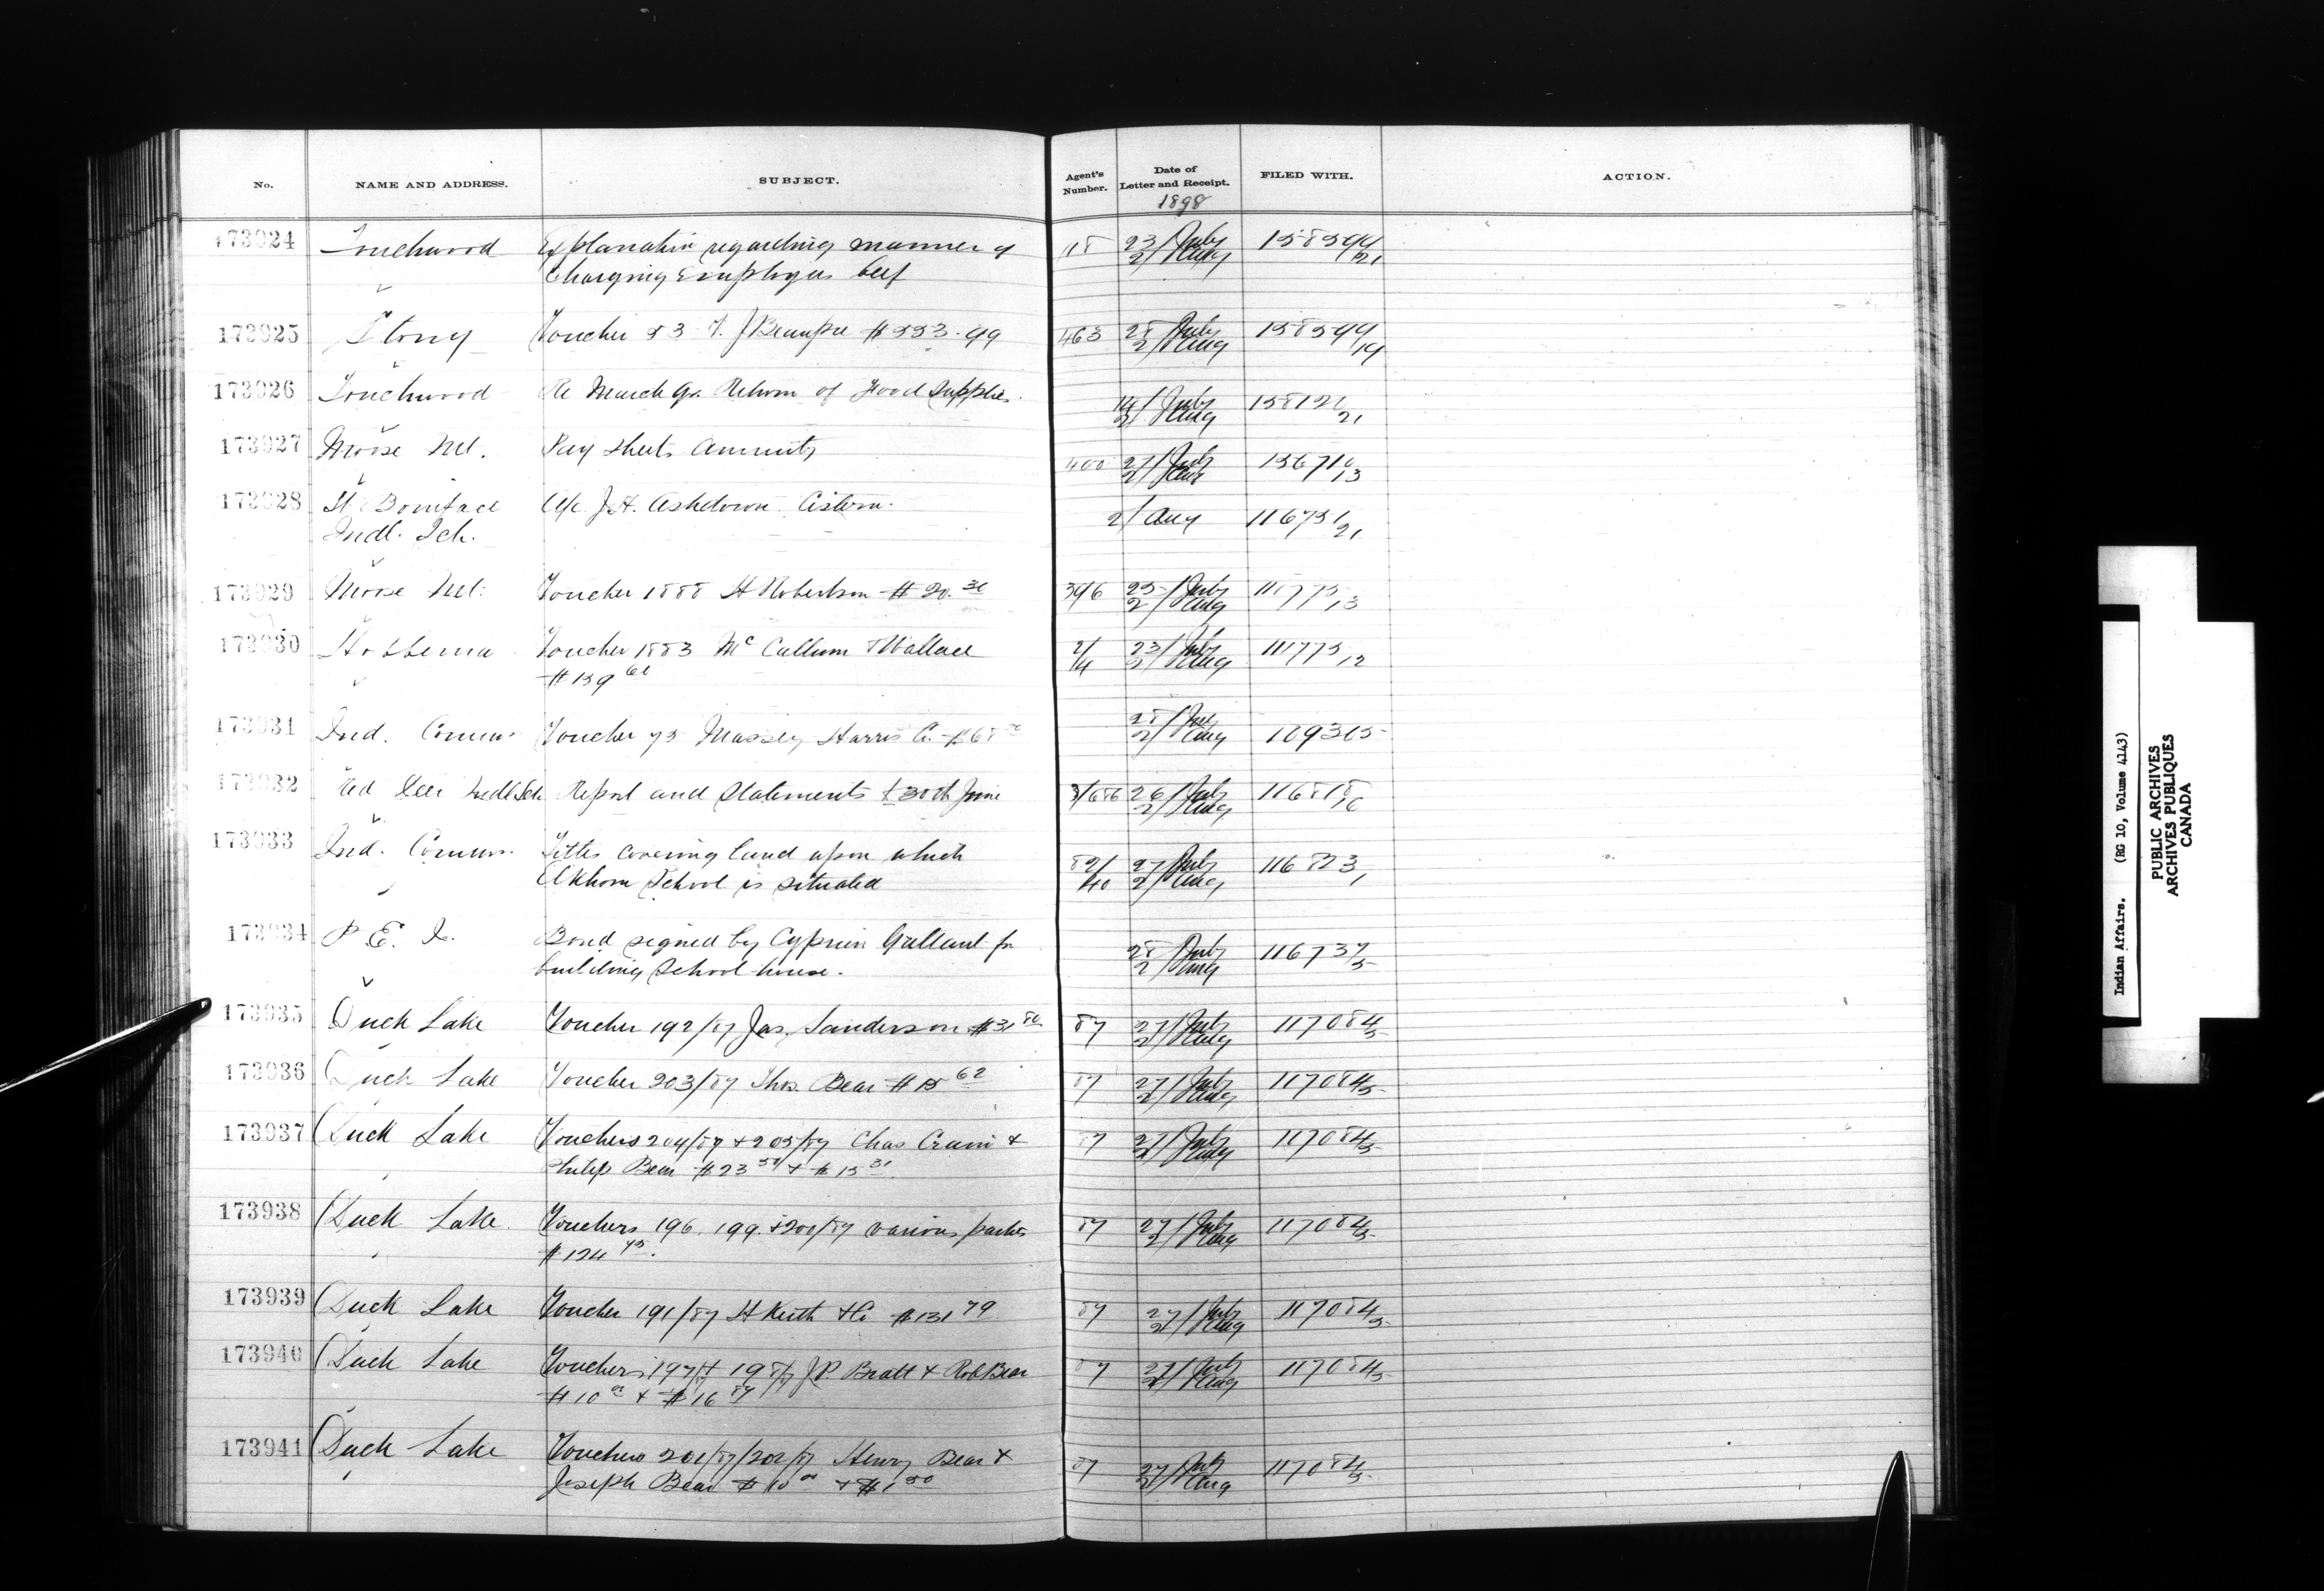 No. NAME AND ADDRESS. SUBJECT. Agent's Number. Date of Letter and Receipt. FILED WITH. ACTION.
1898
173924 Touchwood Explanation regarding manner of 118 23/July 158594/21
Charging Employees beef 2/Aug
173925 Stony Voucher 53 J. Beaupre $553.99 463 28/July 158599/14
2/Aug
173926 Touchwood Re March Qr. Return of Food Supplies. 14/July 15812/21
2/Aug
173927 Moose Mt. Pay Sheets Annuity 400 27/July 15671/13
2/Aug
173928 St Boniface a/c J.H. Ashdown Cistern. 2/Aug 11673/21
Indl. Sch.
173929 Moose Mt. Voucher 1888 H Robertson $20.30 396 25/July 111775/13
2/Aug
173930 Hobbema Voucher 1883 McCallum & Wallace 2/14 23/July 111775/12
$159 2/Aug
173931 Ind. Commr Voucher 75 Massey Harris Co. $68 28/July 109365
2/Aug
173932 Red Deer Indl Sch Report and Statements to 30th June 3/686 26/July 116818/6
2/Aug
173933 Ind. Commr. Titles covering land upon which 82/40 27/July 116823/1
Elkhorn School is situated 2/Aug
173934 P. E. I. Bond signed by Cyprien Gallant for 28/July 116737/5
building School house. 2/Aug
173935 Duck Lake Voucher 192/87 Jas. Sanderson $31 50 87 27/July 117084/5
2/Aug
173936 Duck Lake Voucher 203/87 Thos. Bear $15 62 87 27/July 117084/5
2/Aug
173937 Duck Lake Vouchers 204/87 & 205/87 Chas & 87 27/July 117084/5
Philip Bear $23 50 & $15 31 2/Aug
173938 Duck Lake. Vouchers 196, 199 & 200/87 various parties 87 27/July 117084/5
$124 45. 2/Aug
173939 Duck Lake Voucher 191/87 H Keith & Co $131 79 87 27/July 117084/5
2/Aug
173940 Duck Lake Vouchers 197/87 & 198/87 J P Bratt & Rob Bear 87 27/July 117084/5
$10 00 & $16 87 2/Aug
173941 Duck Lake Vouchers 201/87/202/87 Henry Bear & 87 27/July 117084/5
Joseph Bear $10 00 & $1 50 2/Aug
Indian Affairs. (RG 10, Volume 4143)
PUBLIC ARCHIVES
ARCHIVES PUBLIQUES
CANADA